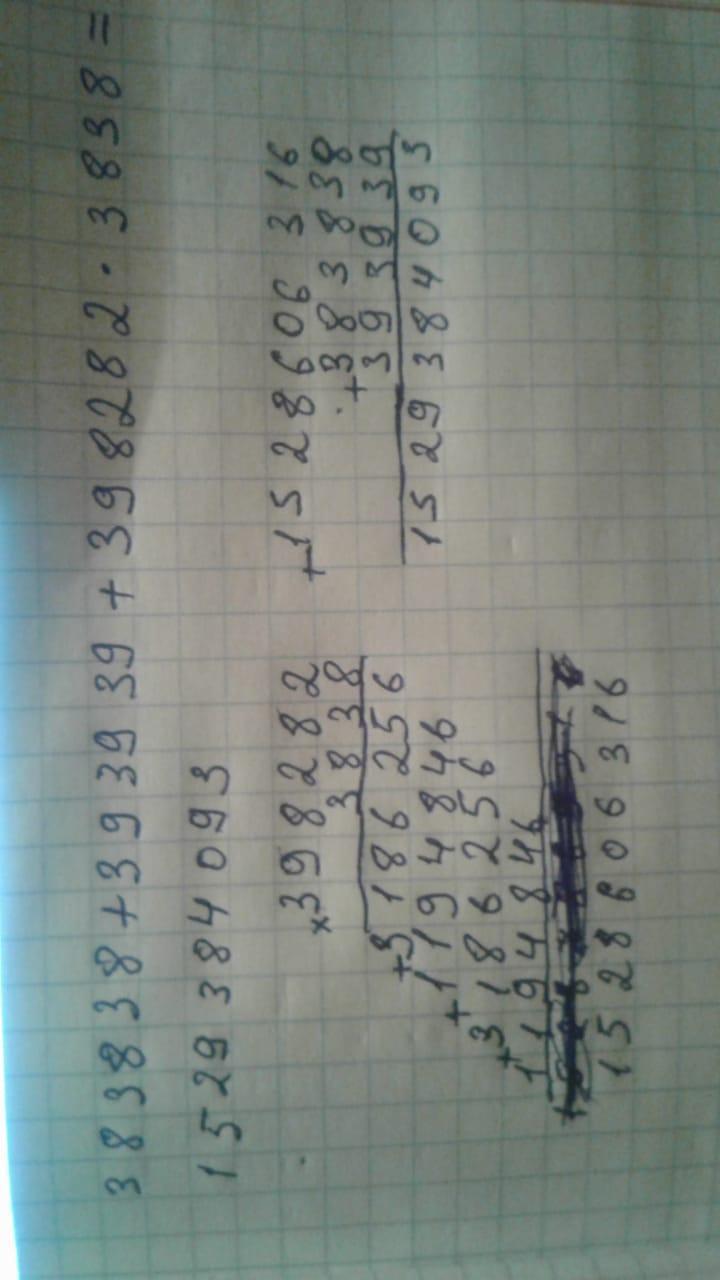 383838+393939+398282·3838=
1529384093
×398282
3838
+3186256
+1194846
+3186256
1194846
1528606316
+1528606316
+383838
393939
1529384093